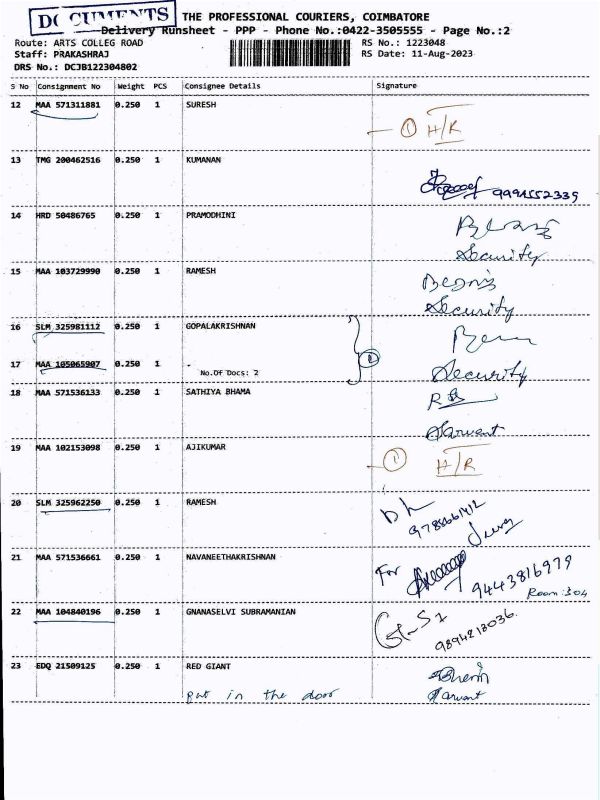 DOCUMENTS
THE PROFESSIONAL COURIERS, COIMBATORE
Delivery Runsheet - PPP - Phone No.:0422-3505555 - Page No.:2
Route: ARTS COLLEG ROAD
RS No.: 1223048
Staff: PRAKASHRAJ
RS Date: 11-Aug-2023
DRS No.: DCJB122304802
S No Consignment No Weight PCS Consignee Details Signature
12 MAA 571311881 0.250 1 SURESH
① H/R
13 TMG 200462516 0.250 1 KUMANAN
14 HRD 50486765 0.250 1 PRAMODHINI
Security
15 MAA 103729990 0.250 1 RAMESH
Security
16 SLM 325981112 0.250 1 GOPALAKRISHNAN
17 MAA 105065907 0.250 1 -
No.Of Docs: 2
Security
18 MAA 571536133 0.250 1 SATHIYA BHAMA
Sarwant
19 MAA 102153098 0.250 1 AJIKUMAR
① H/R
20 SLM 325962250 0.250 1 RAMESH
21 MAA 571536661 0.250 1 NAVANEETHAKRISHNAN
For
9443816979
Room:304
22 MAA 104840196 0.250 1 GNANASELVI SUBRAMANIAN
9894213036
23 EDQ 21509125 0.250 1 RED GIANT
Put in the door
Sarwant